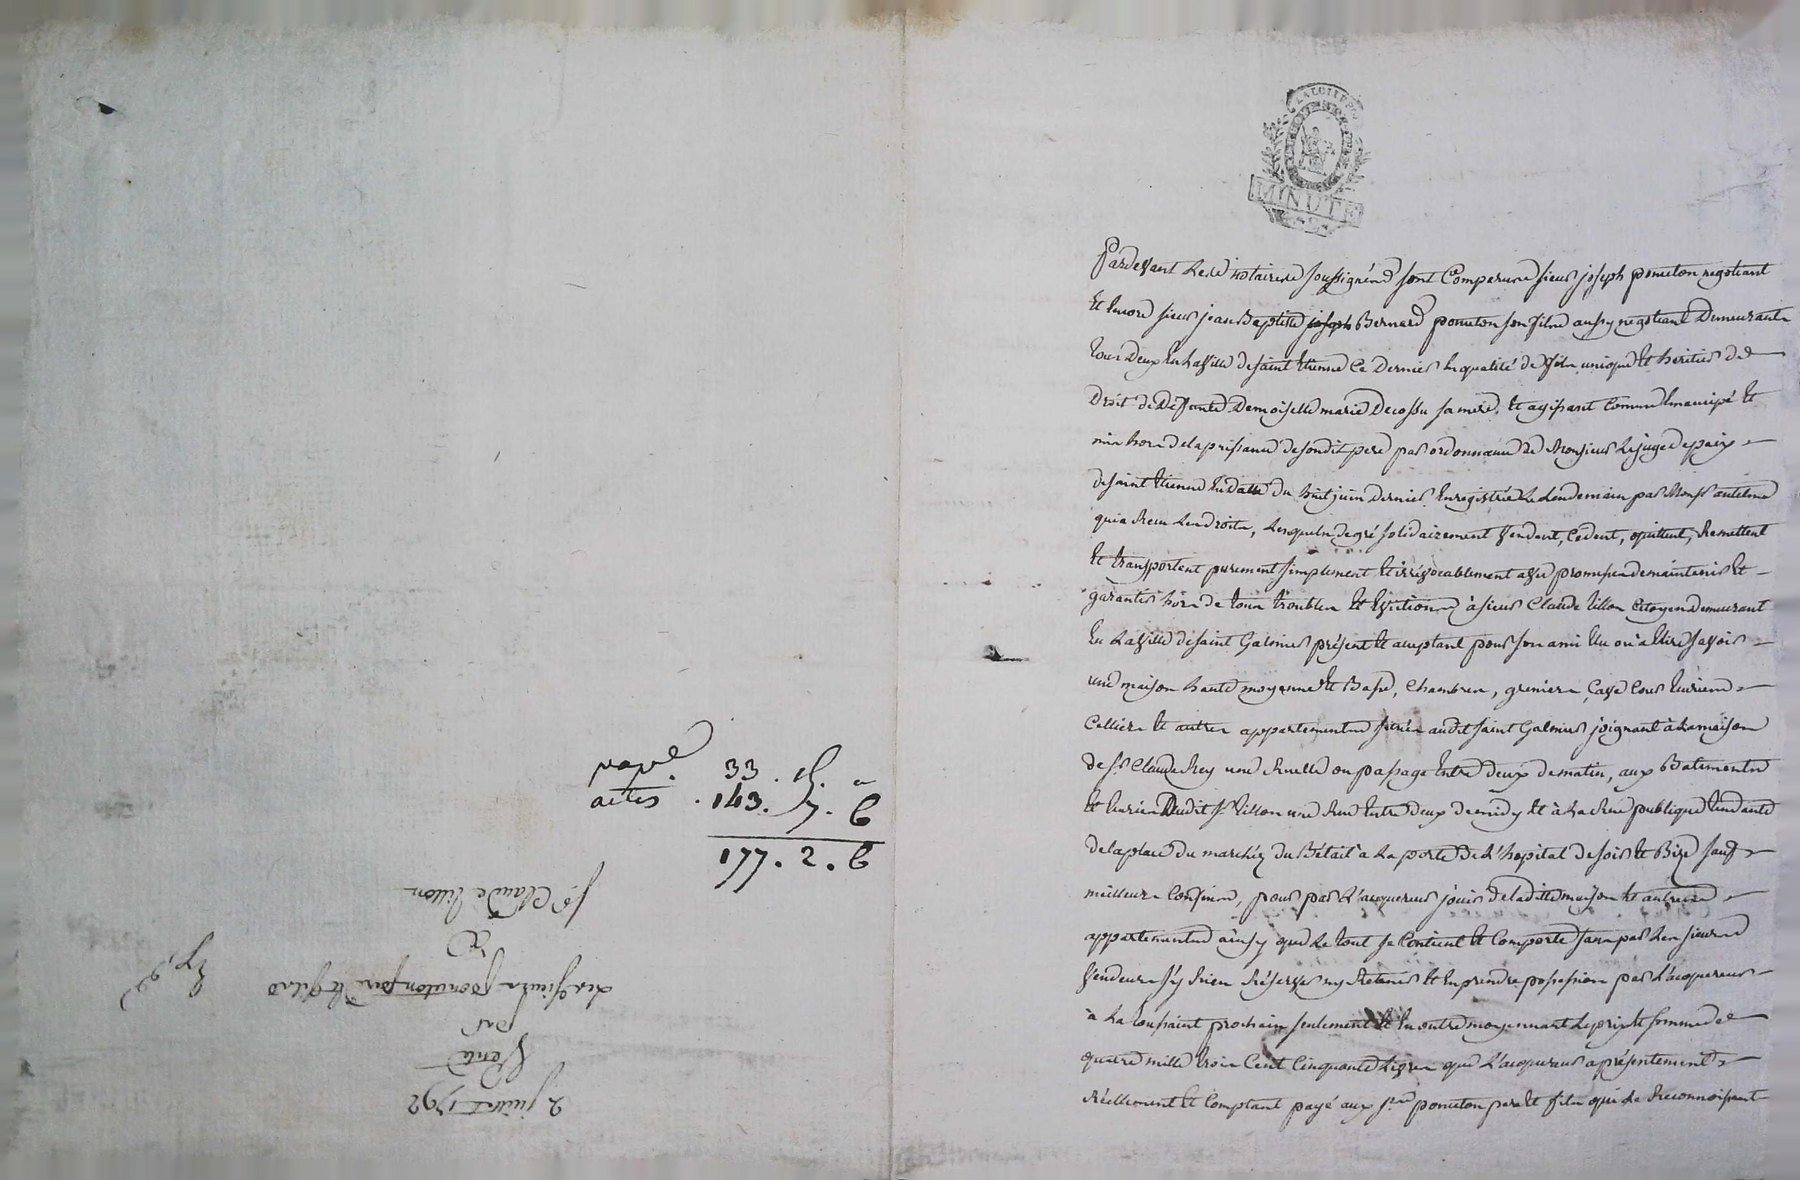 papé. 33. 15. "
actes. 143. 7. 6
177. 2. 6
2 juillet 1792
Vente
par
les sieurs ponceton pere et fils
à
sr. Claude Tillon
Exp.é
LA LOI ET LE ROI
MINUTE
Pardevant Les notaires soussignés sont Comparus sieur joseph ponceton negotiant
Et Encore sieur jean Baptiste joseph Bernard ponceton son fils aussy negotiant Demeurants
tous Deux En La Ville de saint Etienne Ce Dernier En qualité de fils unique Et héritier de
Droit de Deffunte Demoiselle marie Decossu sa mere, Et agissant Comme Emancipé Et
mis hors de la puissance de son dit pere par ordonnance de Monsieur Le juge de paix
de saint Etienne En datte du huit juin dernier Enregistrée Le Lendemain par Monsr antelme
qui a Reçu Les droits, Lesquels de gré solidairement Vendent, Cédent, quittent, Remettent
Et transportent purement simplement Et irrévocablement avec promesse de maintenir Et
garantir hors de tous troubles Et Evictions à sieur Claude Tillon Citoyen demeurant
En La Ville de saint Galmier présent Et acceptant pour son ami Elu ou à Elire savoir
une maison haute moyenne Et Basse, Chambres, greniers, Cave Cour Ecuries
Celliers Et autres appartements situés audit saint Galmier joignant à La maison
de sr. Claude Rey une Ruelle ou passage Entre deux de matin, aux Batiments
Et Ecuries Dudit sr. Tillon une Rue Entre deux de midy Et à La Rue publique tendante
de la place du marché du Bétail à La porte de L'hopital de soir Et Bize sauf
meilleurs Confins, pour par L'acquereur jouir de la ditte maison Et autres
appartements ainsy que Le tout se Contient Et Comporte sans par Les sieurs
Vendeurs s'y Rien Réserver ny Retenir Et En prendre possession par L'acquereur
à La toussaint prochain seulement Et En outre moyennant Le prix Et somme de
quatre mille trois Cent Cinquante Livres que L'acquereur a présentement
réellement Et Comptant payé aux srs. ponceton pere Et fils qui Le Reconnoissent